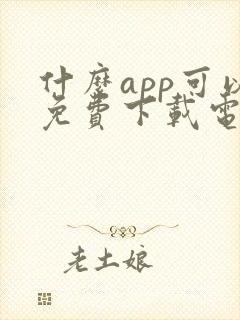 什麼app可以
免費下載電
老土娘